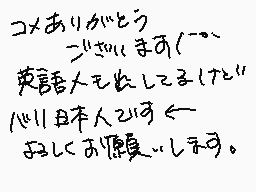 コメありがとう
ございます(^-^
英語人も出してるけど
バリ日本人です←
よろしくお願いします。